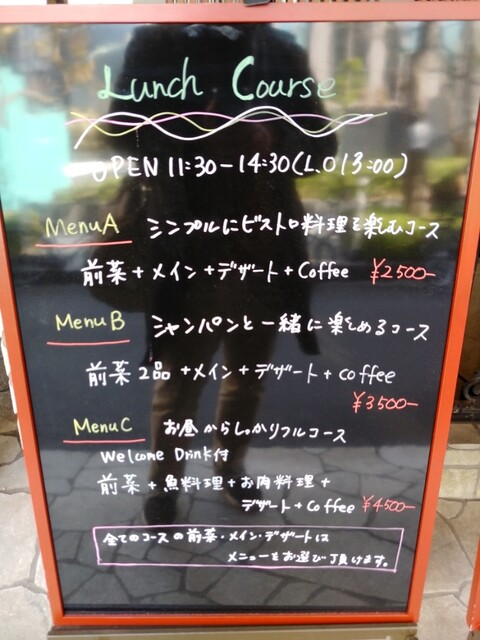 Lunch Course
OPEN 11:30-14:30(L.O 13:00)
Menu A シンプルにビストロ料理を楽むコース
前菜+メイン+デザート+Coffee ¥2500-
Menu B シャンパンと一緒に楽しめるコース
前菜2品+メイン+デザート+coffee
¥3500-
Menu C お昼からしっかりフルコース
Welcome Drink付
前菜+魚料理+お肉料理+
デザート+Coffee ¥4500-
全てのコースの前菜・メイン・デザートは
メニューをお選び頂けます。